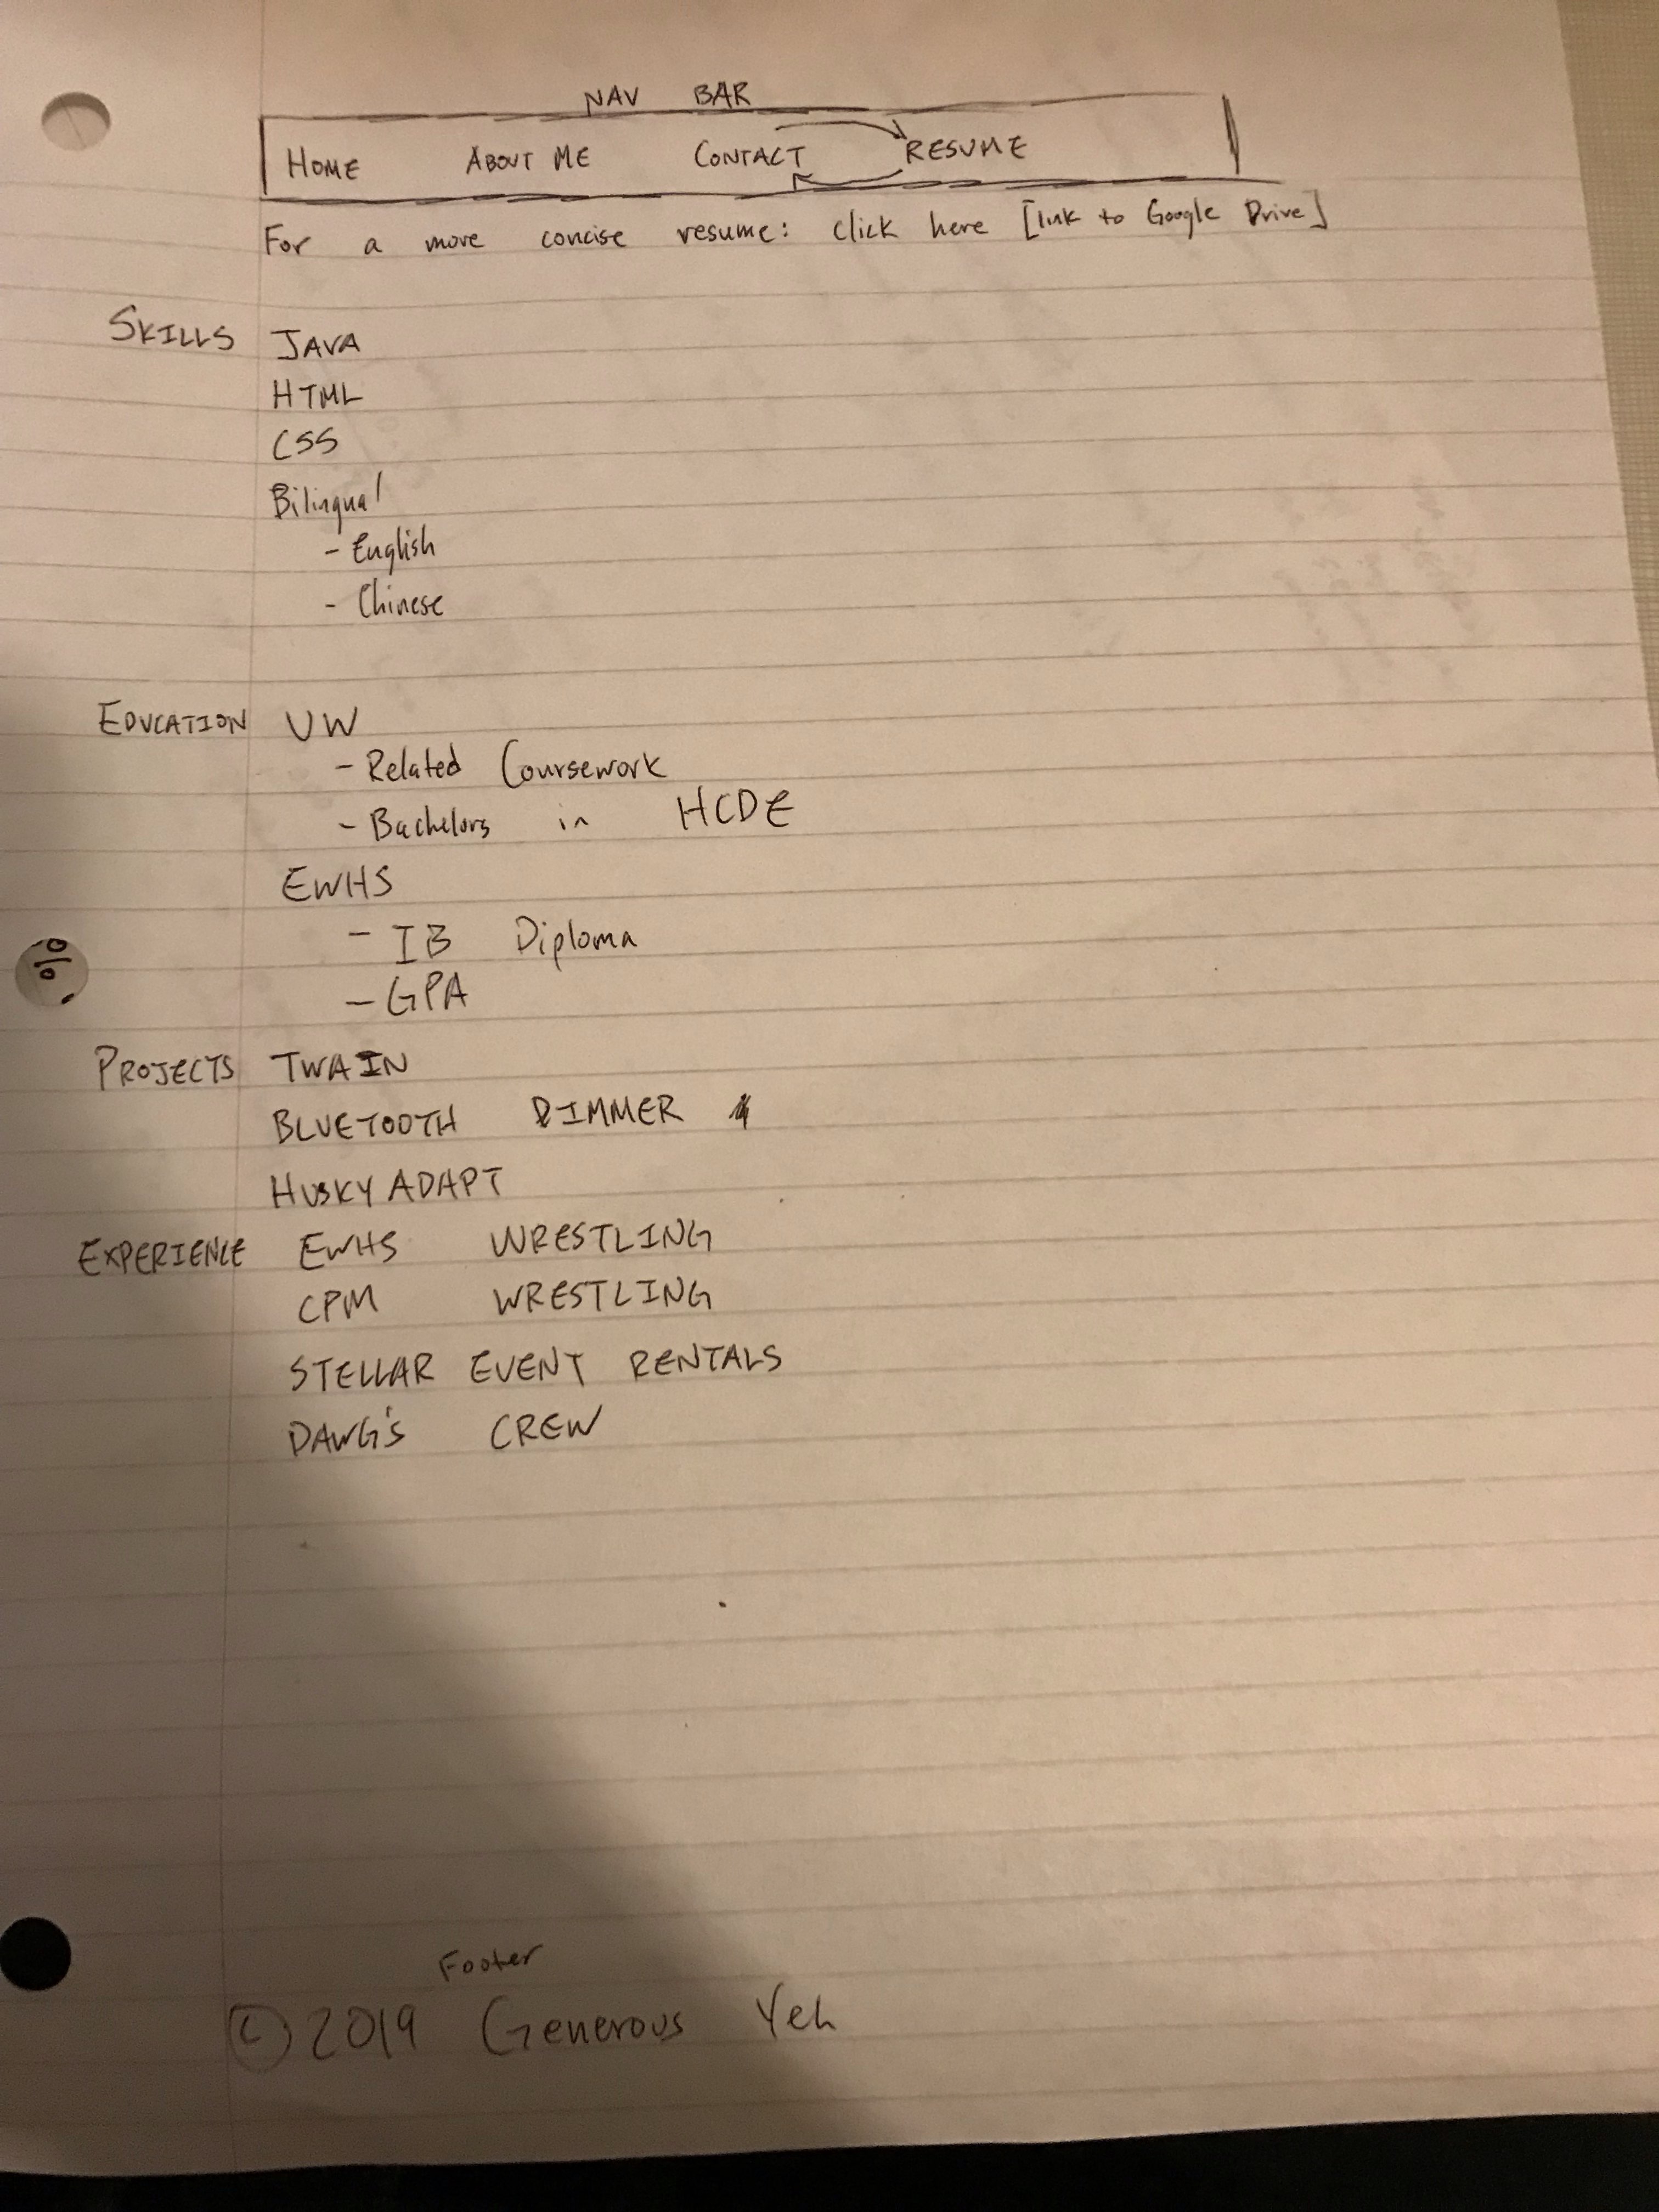 NAV BAR
HOME ABOUT ME CONTACT RESUME
For a more concise resume: click here [link to Google Drive]
SKILLS JAVA
HTML
CSS
Bilingual
- English
- Chinese
EDUCATION UW
- Related Coursework
- Bachelors in HCDE
EWHS
- IB Diploma
- GPA
PROJECTS TWAIN
BLUETOOTH DIMMER
HUSKY ADAPT
EXPERIENCE EWHS WRESTLING
CPM WRESTLING
STELLAR EVENT RENTALS
DAWG'S CREW
Footer
© 2019 Generous Yeh